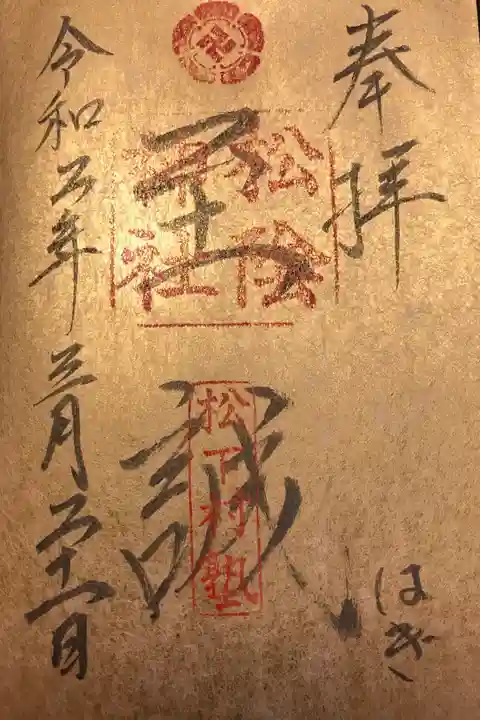 奉拝
はぎ
松陰神社
至誠
松下村塾
令和五年三月二十一日